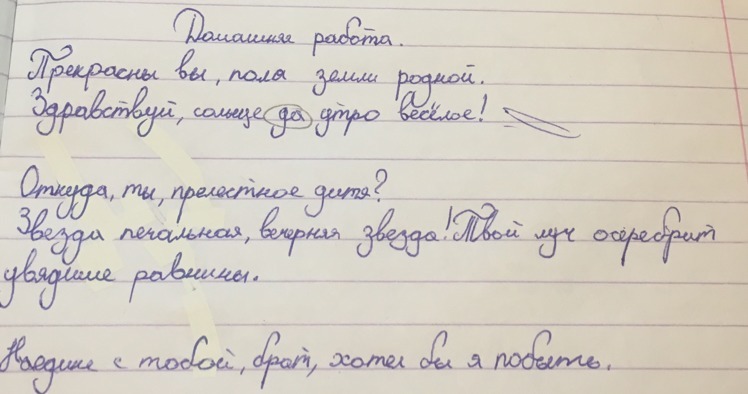 Домашняя работа.
Прекрасны вы, поля земли родной.
Здравствуй, солнце да утро весёлое!
Откуда, ты, прелестное дитя?
Звезда печальная, вечерняя звезда! Твой луч осеребрит
увядшие равнины.
Наедине с тобой, брат, хотел бы я побыть.